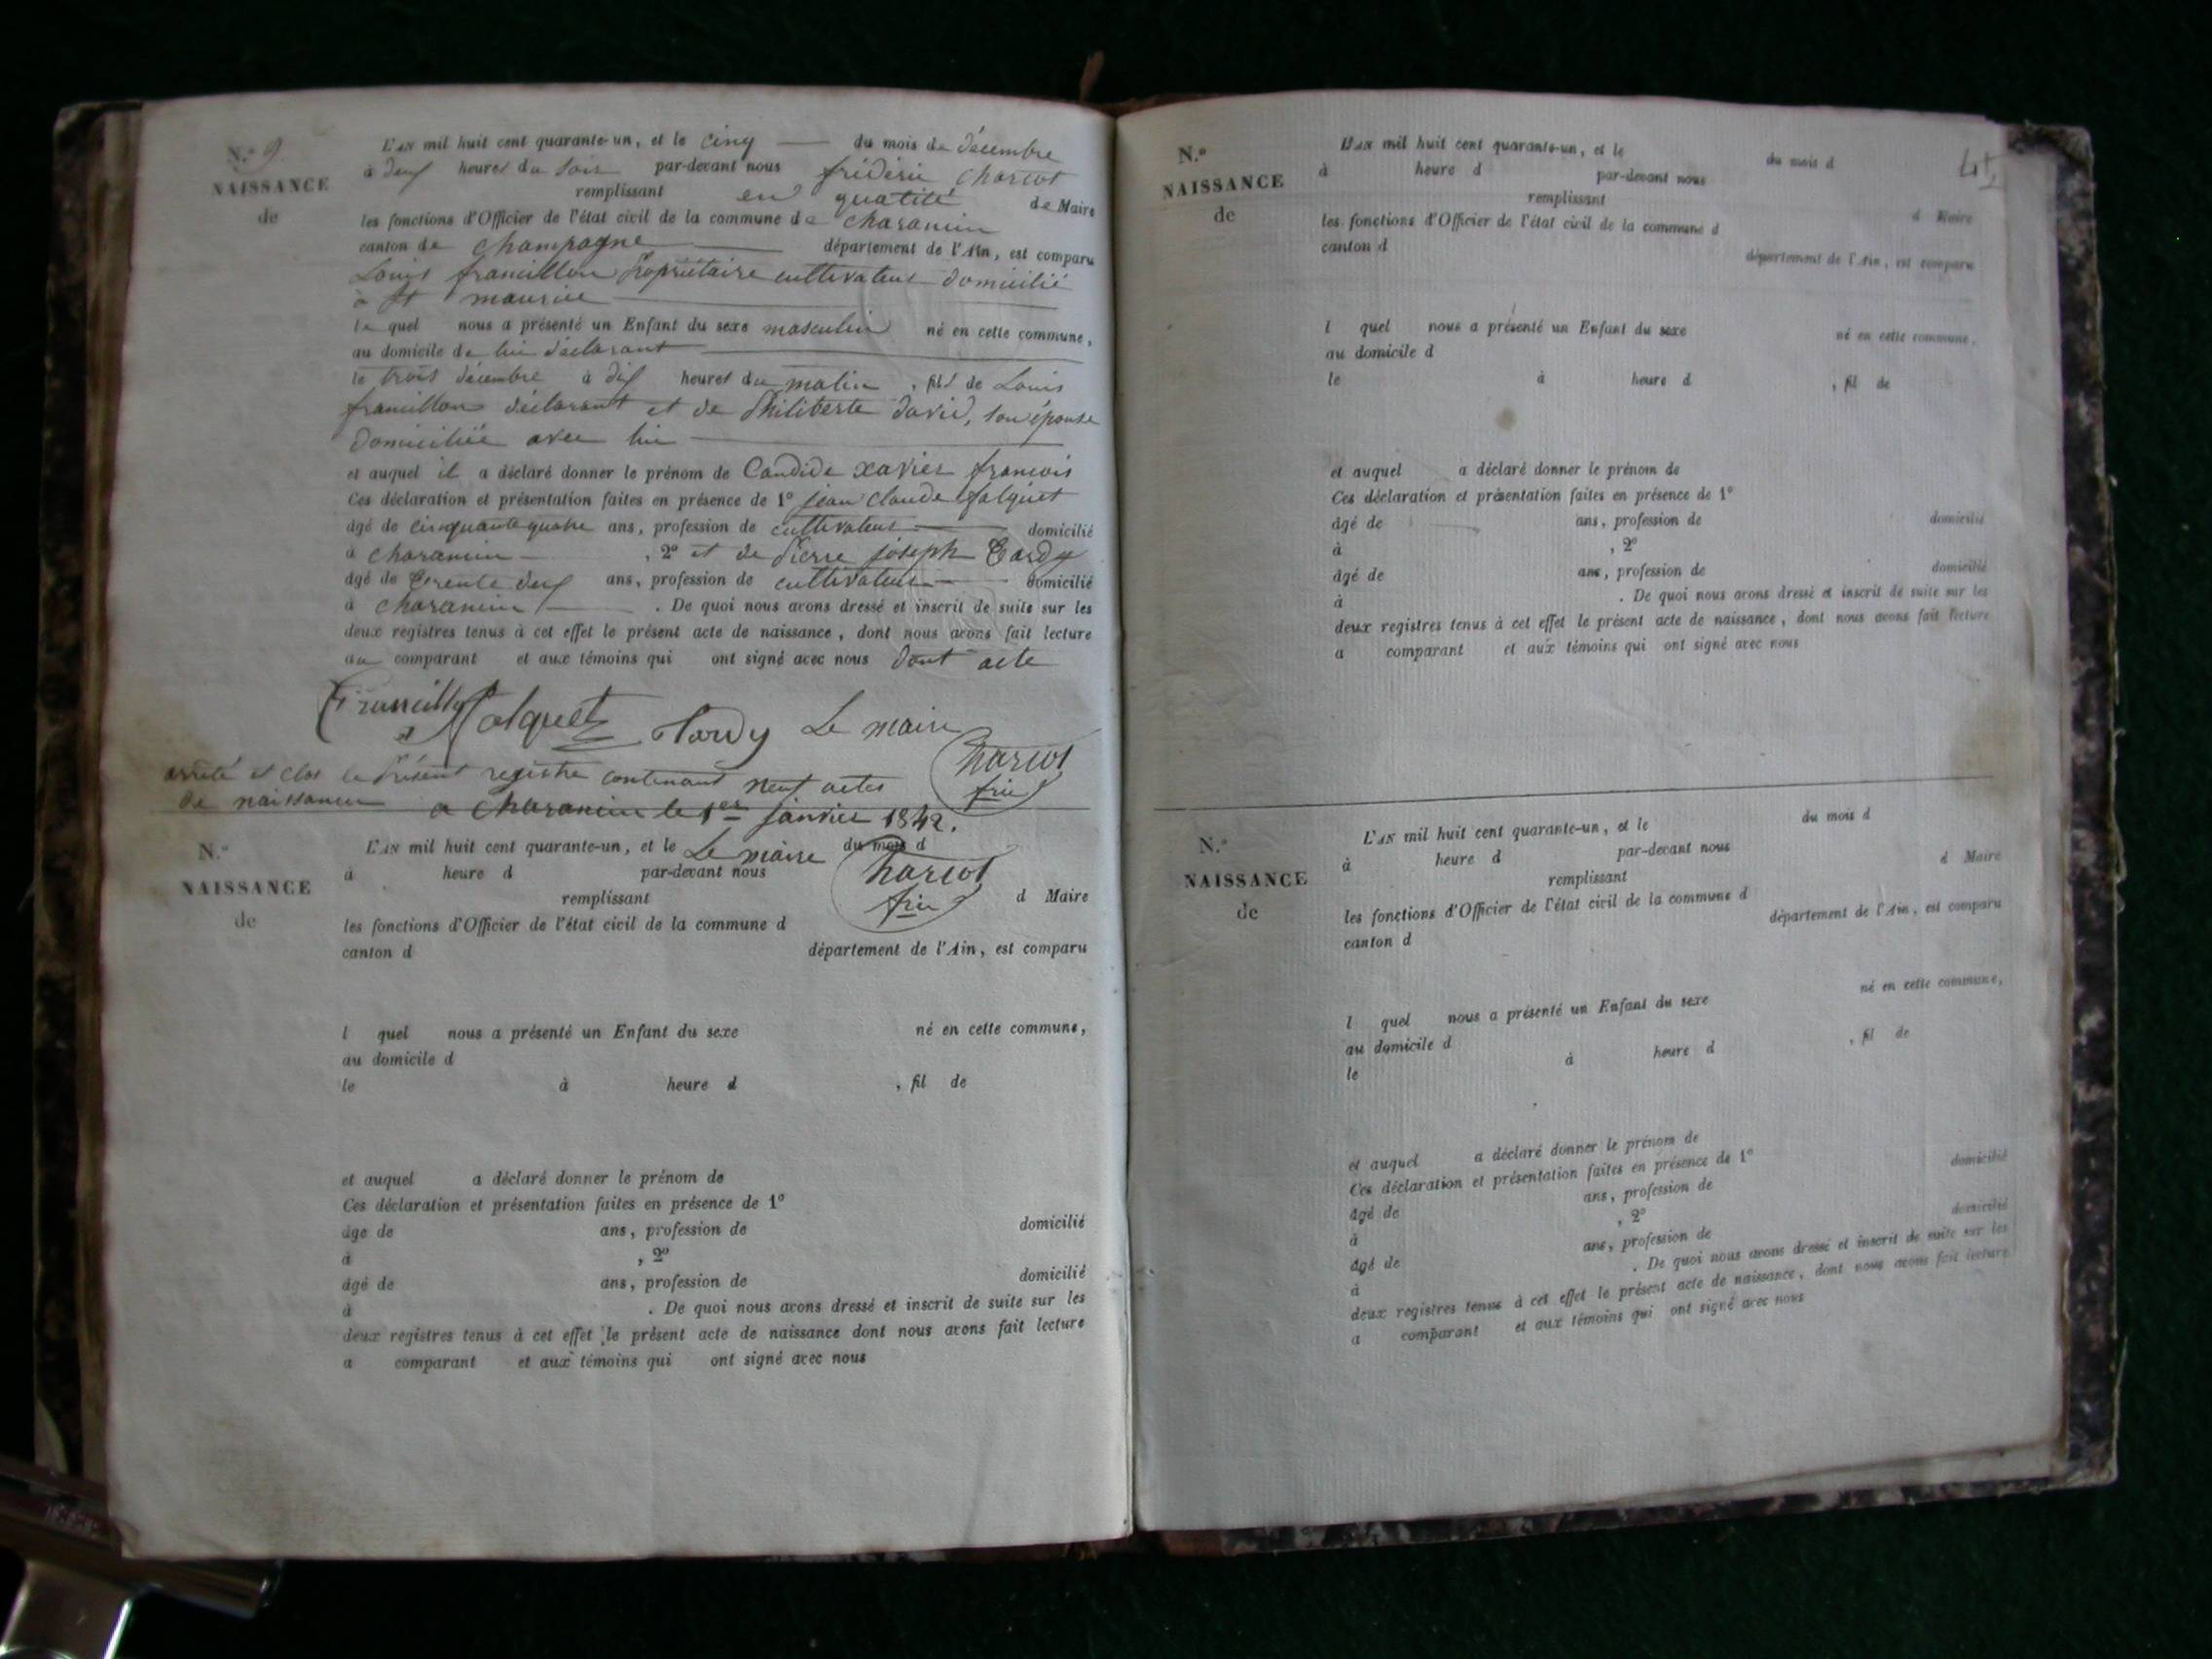 N.º 9
NAISSANCE
de
L'AN mil huit cent quarante-un, et le cinq du mois de décembre
à deux heures du soir par-devant nous frédéric charcot
remplissant en qualité de Maire
les fonctions d'Officier de l'état civil de la commune de charancin
canton de champagne département de l'Ain, est comparu
Louis francillon Propriétaire cultivateur domicilié
à st maurice
le quel nous a présenté un Enfant du sexe masculin né en cette commune,
au domicile de lui déclarant
le trois décembre à dix heures du matin, fils de Louis
francillon déclarant et de Philiberte david, son épouse
domiciliée avec lui
et auquel il a déclaré donner le prénom de Candide xavier francois
Ces déclaration et présentation faites en présence de 1º jean claude
âgé de cinquante quatre ans, profession de cultivateur domicilié
à charancin, 2º et de Pierre joseph Tardy
âgé de trente deux ans, profession de cultivateur domicilié
à charancin. De quoi nous avons dressé et inscrit de suite sur les
deux registres tenus à cet effet le présent acte de naissance, dont nous avons fait lecture
au comparant et aux témoins qui ont signé avec nous dont acte
Francillon Tardy Le maire
Charcot
fric
arrêté et clos le Présent registre contenant neuf actes
de naissance a charancin le 1er janvier 1842.
Le maire Charcot
fric
N.º
NAISSANCE
de
L'AN mil huit cent quarante-un, et le du mois d
à heure d par-devant nous
remplissant d Maire
les fonctions d'Officier de l'état civil de la commune d
canton d département de l'Ain, est comparu
l quel nous a présenté un Enfant du sexe né en cette commune,
au domicile d
le à heure d , fil de
et auquel a déclaré donner le prénom de
Ces déclaration et présentation faites en présence de 1º
âgé de ans, profession de domicilié
à , 2º
âgé de ans, profession de domicilié
à . De quoi nous avons dressé et inscrit de suite sur les
deux registres tenus à cet effet le présent acte de naissance dont nous avons fait lecture
a comparant et aux témoins qui ont signé avec nous
N.º
NAISSANCE
de
L'AN mil huit cent quarante-un, et le du mois d
à heure d par-devant nous
remplissant d Maire
les fonctions d'Officier de l'état civil de la commune d
canton d département de l'Ain, est comparu
l quel nous a présenté un Enfant du sexe né en cette commune,
au domicile d
le à heure d , fil de
et auquel a déclaré donner le prénom de
Ces déclaration et présentation faites en présence de 1º
âgé de ans, profession de domicilié
à , 2º
âgé de ans, profession de domicilié
à . De quoi nous avons dressé et inscrit de suite sur les
deux registres tenus à cet effet le présent acte de naissance, dont nous avons fait lecture
a comparant et aux témoins qui ont signé avec nous
N.º
NAISSANCE
de
L'AN mil huit cent quarante-un, et le du mois d
à heure d par-devant nous
remplissant d Maire
les fonctions d'Officier de l'état civil de la commune d
canton d département de l'Ain, est comparu
l quel nous a présenté un Enfant du sexe né en cette commune,
au domicile d
le à heure d , fil de
et auquel a déclaré donner le prénom de
Ces déclaration et présentation faites en présence de 1º
âgé de ans, profession de domicilié
à , 2º
âgé de ans, profession de domicilié
à . De quoi nous avons dressé et inscrit de suite sur les
deux registres tenus à cet effet le présent acte de naissance, dont nous avons fait lecture
a comparant et aux témoins qui ont signé avec nous